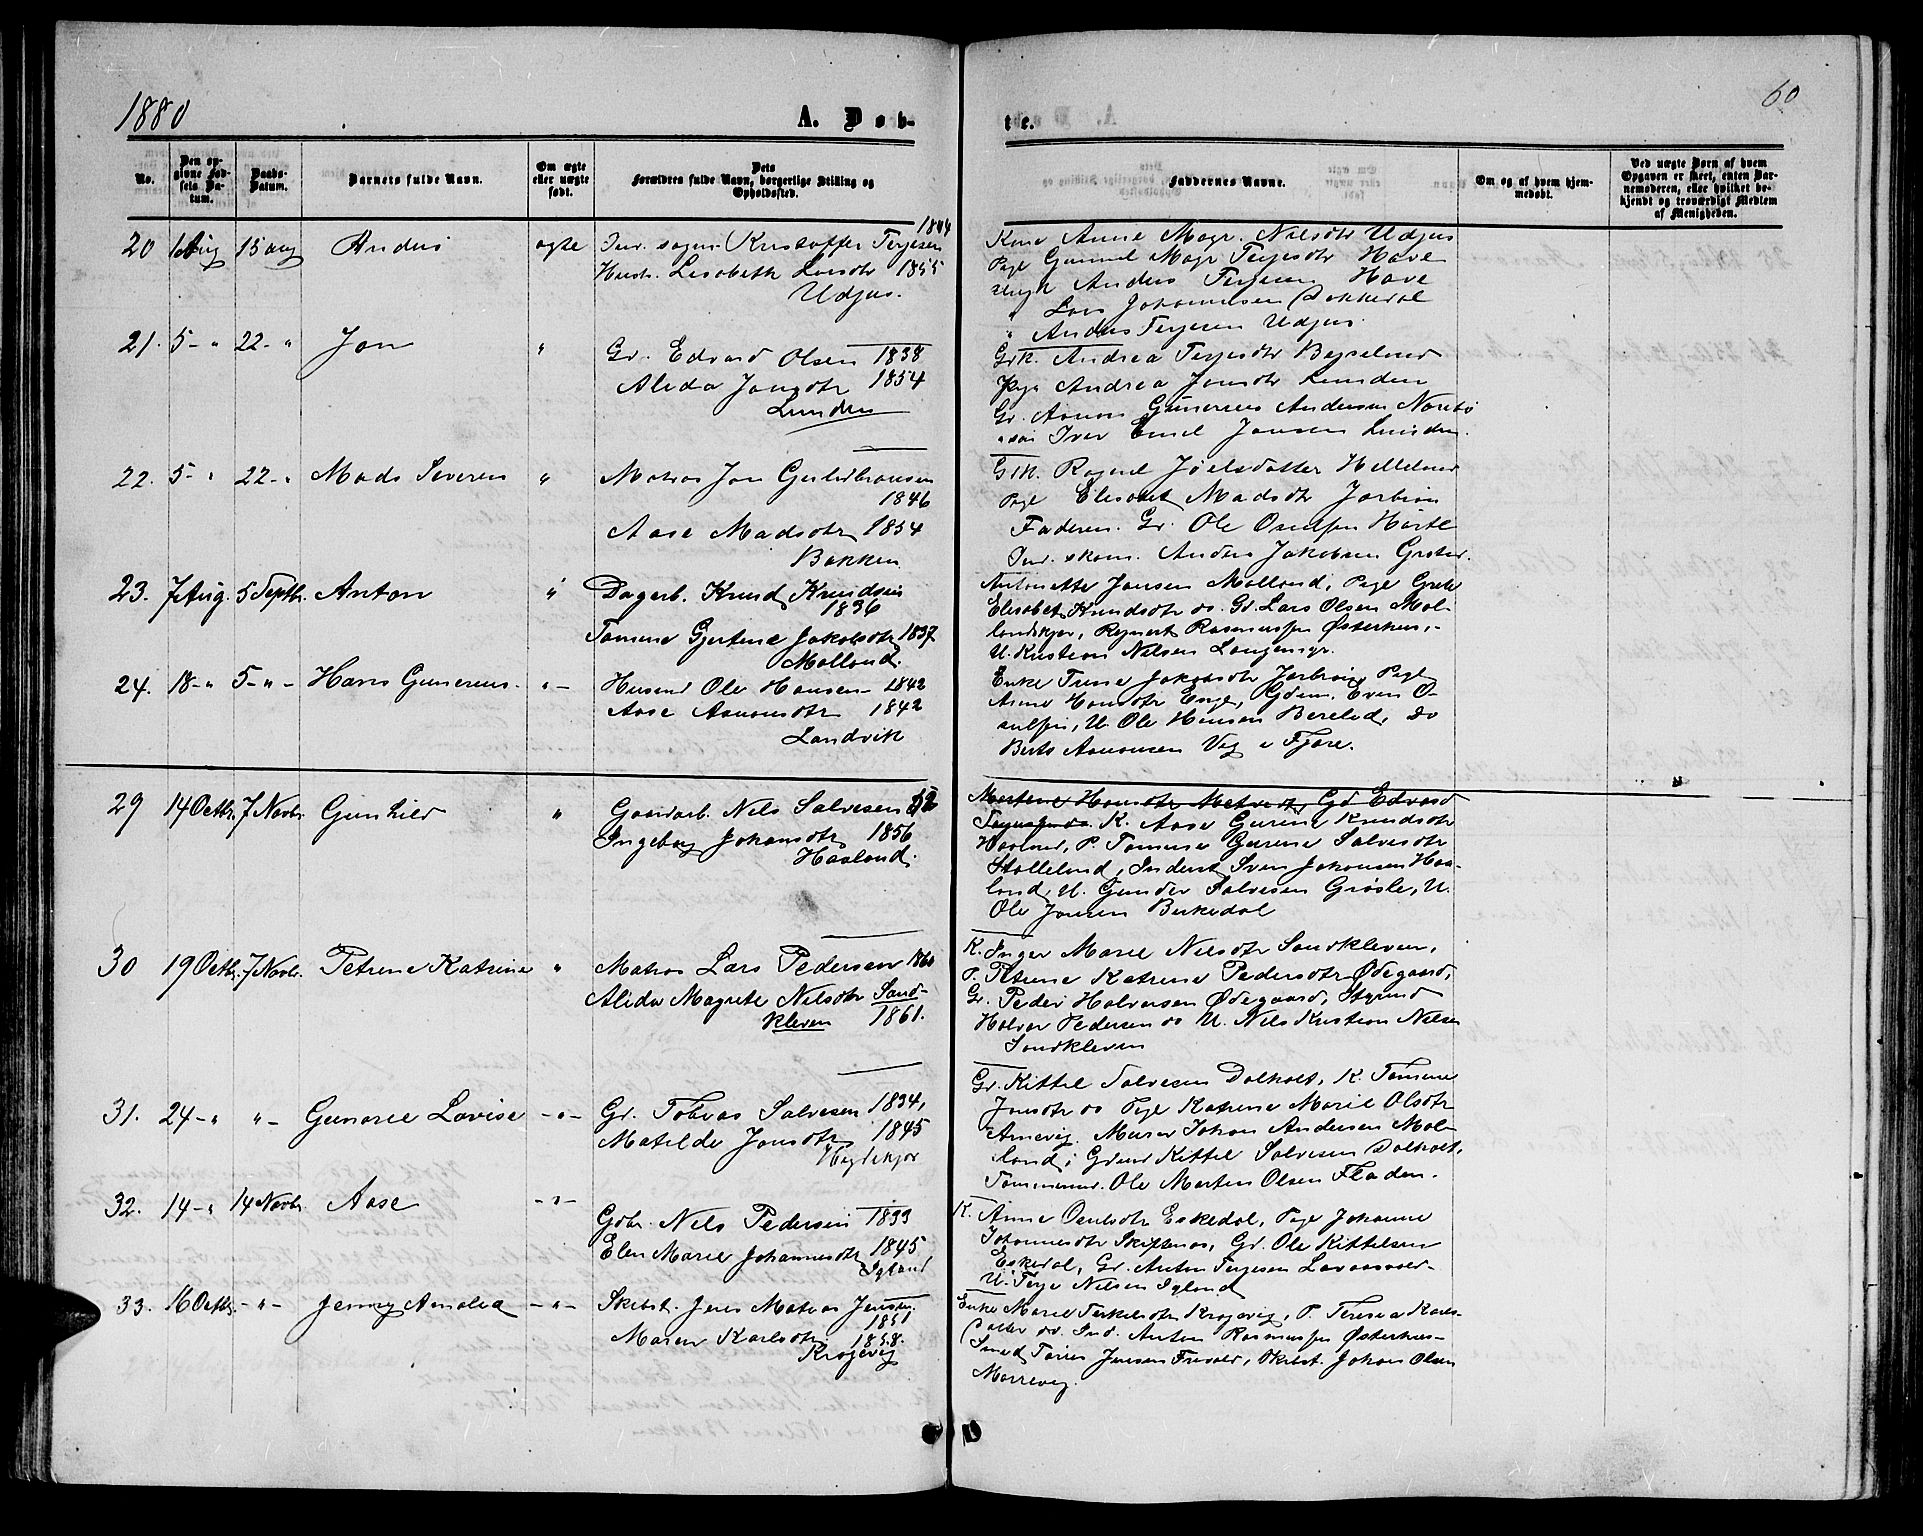 1880
A. Døb-
te.
60
No.
Den op-
givne Fød-
sels Da-
tum.
Daabs-
Datum.
Barnets fulde Navn.
Om ægte
eller uægte
født.
Dets
Forældres fulde Navn, borgerlige Stilling og
Opholdssted.
Faddernes Navne.
Om og af hvem hjem-
medøbt.
Ved uægte Børn af hvem
Opgaven er skeet, enten Bar-
nemoderen, eller hvilket be-
kjendt og troværdigt Medlem
af Menigheden.
20 Aug 15 aug Anders ægte Kristoffer Terjesen
Lisabeth Larsdtr 1855
Udjus.
Kone Anne Magr. Nilsdtr Udjus
Pige Gunnel Magr Terjesdtr Have
Ungk Anders Terjesen Have
" Lars Johannesen
" Anders Terjesen Udjus.
21. 5 - " 22 - " Jon "
Gr. Edvard Olsen 1838
Alida Jonsdtr 1854
Lunden
Grk. Andrea Terjesdtr
Pige Andrea Jonsdtr Lunden
Gr. Gunerius Andersen
Iver Emil Jonsen Lunden.
22. 5 - " 22 - " Mads Severin "
Matros Jon
1846
Aase Madsdtr 1854
Bakken
Grk. Ragnil Joelsdatter
Pige Elisabet Madsdtr
Faderen. Gr. Ole
Anders Jakobsen
23. 7 Aug. 5 Septbr. Anton "
Dagarb. Knud Knudsen
1836
Tomine Gjertine Jakobsdtr 1837
Molland.
Antonette Jonsen Molland, Pige Grete
Elisabet Knudsdtr do. Gr. Lars Olsen Mol-
landskjær, Reinert Rasmussen Østerhus,
U. Kristian Nilsen
24. 18 - " 5 - " - Hans Gunerius. " -
Husmd Ole Hansen 1842
Aase Aanonsdtr 1842
Landvik
Enke Trine Jakobsdtr Pige
Anne Hansdtr Enge, Gdem. Even O-
U. Ole Hansen Do
Aanonsen Veg i Fjære.
29 14 Octbr. 7 Novbr. Gunhild "
Gaardarb. Nils Salvesen 52
Ingeborg Johansdtr 1856
Haaland.
Martene Hansdtr Gd Edvard
K. Aase Gurine Knudsdtr
P. Tomine Gurine Salvesdtr
Stalleland, Inderst Sven Johansen Haa-
land, U. Gunder Salvesen Grøsle, U.
Ole Jonsen Birkedal
30 19 Octbr. 7 Novbr. Petrine Katrine "
Matros Lars Pedersen 1860
Alida Magrete Nilsdtr Sand-
kleven 1861.
K. Inger Marie Nilsdtr Sandkleven,
P. Petrine Katrine Pedersdtr Ødegaard,
Gr. Peder Halvorsen Ødegaard, Styrmd
Halvor Pedersen do U. Nils Kristian Nilsen
Sandkleven
31. 24 - " " - Gunarie Lovise - " -
Gr. Tobias Salvesen 1834,
Matilde Jonsdtr 1845
Gr. Kittel Salvesen Dalholt, K. Tomine
Jonsdtr do Pige Katrine Marie Olsdtr
Arnevig. Murer Johan Andersen Mol-
land, Gdem Kittel Salvesen Dalholt,
Tømmermd. Ole Martin Olsen Fladen.
32. 14 - " 14 Novbr. Aase - " -
Gdbr. Nils Pedersen 1833
Elen Marie Johannesdtr 1845
Igland
K. Anne Eskedal, Pige Johanne
Johannesdtr Skiftenes, Gr. Ole Kittelsen
Eskedal, Gr. Anton Terjesen
U. Terje Nilsen Igland
33. 16 Octbr. - " - Jenny Amalia - " -
Skibst. Jens Matias Jensen.
1851
Maren Karlsdtr 1858.
Krøgevig
Enke Marie Terkelsdtr Krøgevig, P. Teresea Karls-
datter do. Ind. Anton Rasmussen Østerhus
Smed Jensen Skibst. Johan Olsen
Morrevig.